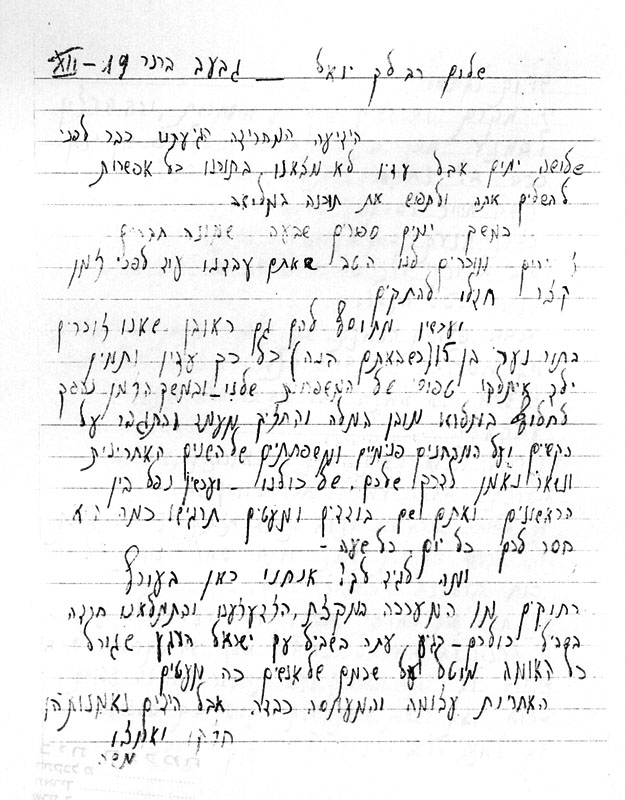 שלום רב לך יואל — גבעת ברנר 19-XII
הידיעה המחרידה הגיעתנו כבר לפני
שלושה ימים אבל עדיין לא מצאנו בתוכנו כל אפשרות
להשלים אתה ולתפוש את תוכנה במלואה
במשך ימים ספורים שבעה שמונה חברים
יקרים מוכרים לנו היטב שאתם עבדנו עוד לפני זמן
קצר חדלו להתקיים
ועכשיו מתוסף להם גם ראובן שאנו זוכרים
בתור נער בן 15 (כשבאתם הנה) כל כך עדין ותמים
ילד אינטלקטואלי טפוסי של המשפחות שלנו – ובמשך הזמן נהפך
לחלוץ במלוא מובן המלה והחזיק מעמד והתגבר על
הקשיים ועל המבחנים פנימיים ומשפחתיים של השנים האחרונות
ונשאר נאמן לדרך שלכם, של כולנו – ועכשיו נפל בין
הראשונים ואתם שם בודדים ומעטים תרגישו כמה הוא
חסר לכם כל יום, כל שעה –
ומה להגיד לך? אנחנו כאן בעורף
רחוקים מן המערכה במקצת, הזדעזענו והתמלאנו חרדה
בשביל כולכם – רגע עתה בשביל עם ישראל הרגע שגורל
כל האומה מוטל על שכמם של אנשים כה מעטים
האחריות עצומה והמעמסה כבדה אבל הידים נאמנות הן
חזקו ואמצו